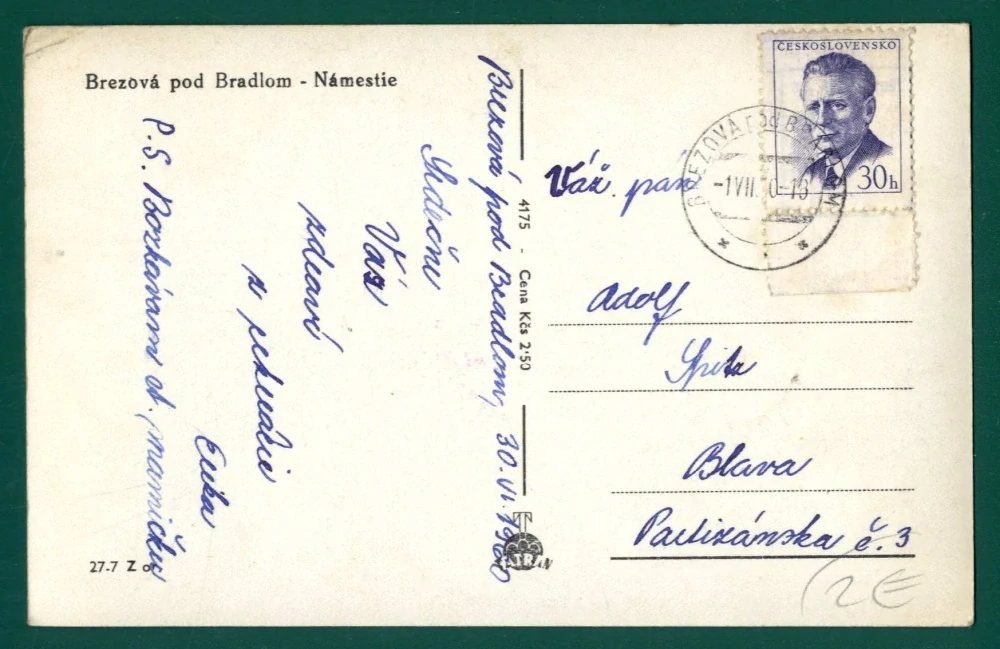 Brezová pod Bradlom - Námestie
Brezová pod Bradlom, 30. VI. 1960
Srdečne
Vás
zdraví
z rekreácie
Erika
P.S. Bozkávam st. mamičku
27.7 Z
4175 - Cena Kčs 2·50
TATRAN
ČESKOSLOVENSKO
30h
BREZOVÁ pod BRADLOM
-1 VII. 0-16
Váž. pán
Adolf
Spitz
Blava
Partizánska č. 3
2€